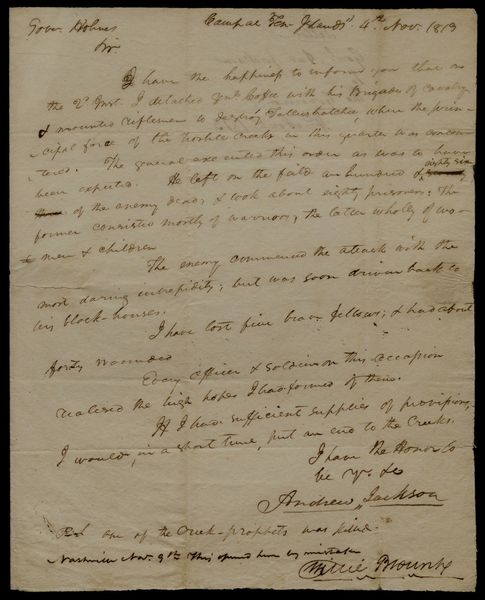 Gover. Holmes Camp at Ten Islands 4th Nov. 1813
Sir
I have the happiness to inform you that on
the 2d Inst. I detached Genl Coffee with his Brigade of Cavalry
& mounted riflemen to destroy Tallushatches, where the prin-
-cipal force of the hostile Creeks in this quarter was concen-
tered. The general executed this order as was to have
been expected. He left on the field an hundred & eighty six
of the enemy dead; & took about eighty prisoners: The
former consisted mostly of warriors; the latter wholly of wo-
men & children
The enemy commenced the attack with the
most daring intrepidity; but was soon driven back to
his block-houses.
I have lost five brave fellows; & had about
forty wounded
Every officer & soldier on this occassion
realised the high hopes I had formed of them.
If I had sufficient supplies of provisions,
I would, in a short time, put an end to the Creeks.
I have the Honor to
be yr. &c
Andrew Jackson
one of the Creek-prophets was killed.
Nashville Nov. 9th This opened here by mistake
Willie Blount